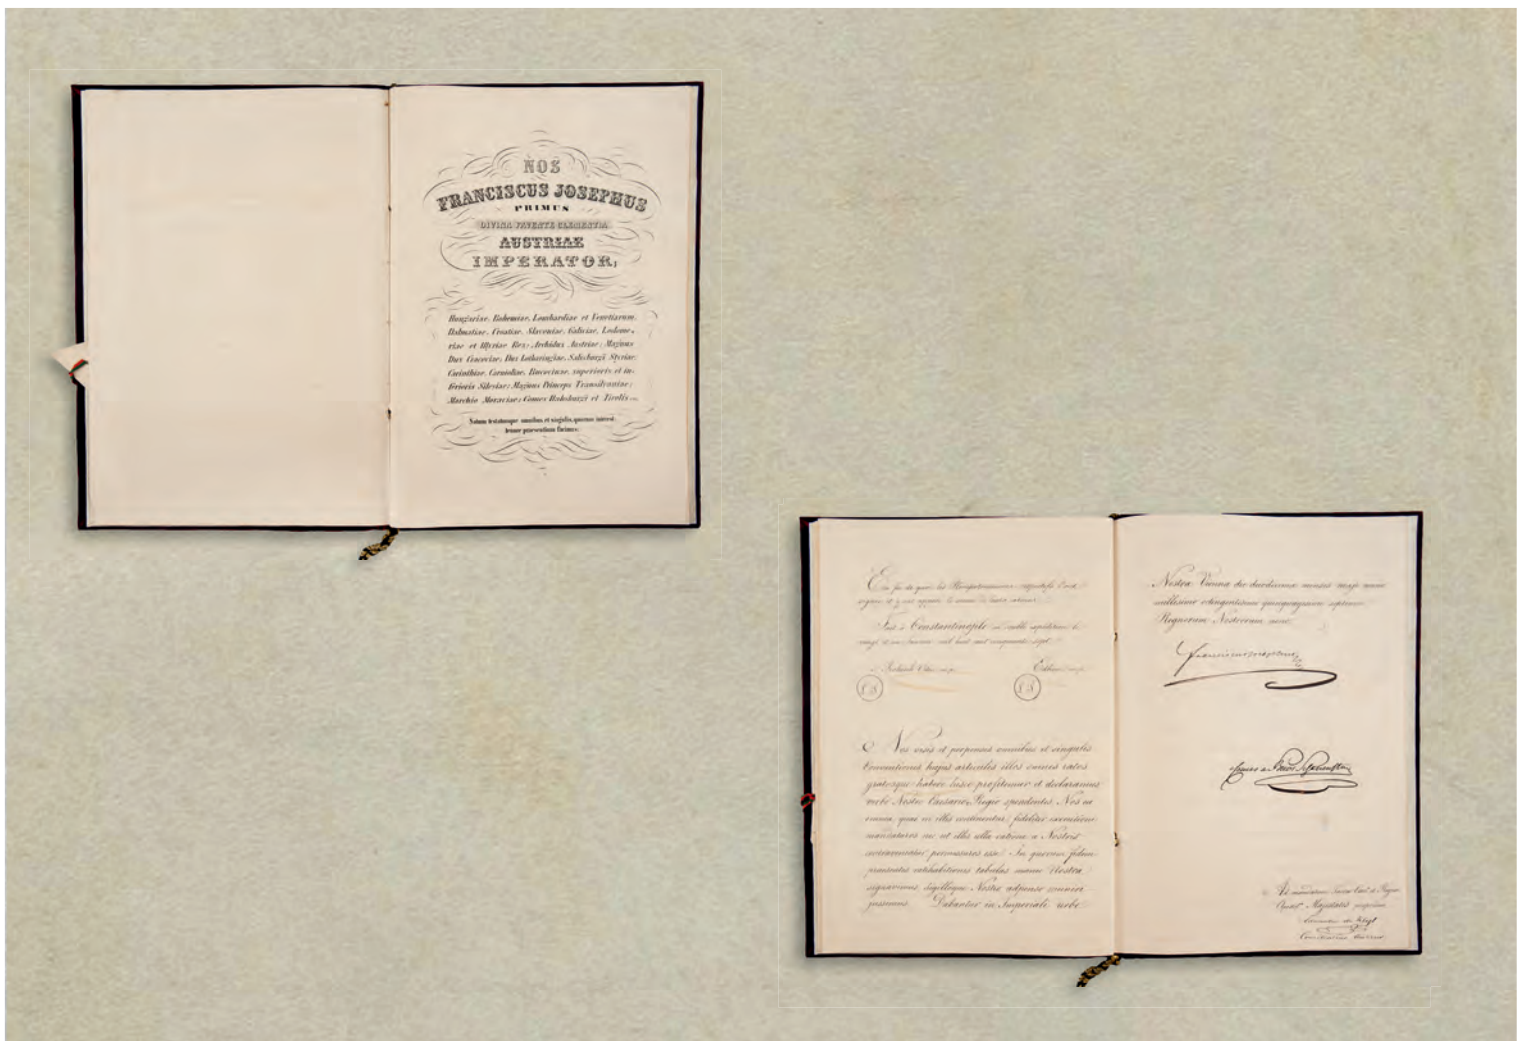 NOS
FRANCISCUS JOSEPHUS
PRIMUS
DIVINA FAVENTE CLEMENTIA
AUSTRIAE
IMPERATOR,
Hungariae, Bohemiae, Lombardiae et Venetiarum,
Dalmatiae, Croatiae, Slavoniae, Galiciae, Lodome-
riae et Illyriae Rex; Archidux Austriae; Magnus
Dux Cracoviae; Dux Lotharingiae, Salisburgi Styriae,
Carinthiae, Carnioliae, Bucovinae, superioris et in-
ferioris Silesiae; Magnus Princeps Transilvaniae;
Marchio Moraviae; Comes Habsburgi et Tirolis
Notum testatumque omnibus et singulis, quorum interest,
tenore praesentium facimus:
En foi de quoi les Plénipotentiaires respectifs l'ont
signé et y ont apposé le sceau de leurs armes
Fait à Constantinople
mil huit cent cinquante sept
Ethem
L S
L S
Nos visis et perpensis omnibus et singulis
Conventionis hujus articulis illos omnes ratos
gratosque habere hisce profitemur et declaramus
verbo Nostro Caesareo Regio spondentes, Nos ea
omnia, quae in illis continentur, fideliter executioni
mandaturos nec ut illis ulla ratione a Nostris
contraveniatur permissuros esse. In quorum fidem
praesentes ratihabitionis tabulas manu Nostra
signavimus sigilloque Nostro adpenso muniri
jussimus. Dabantur in Imperiali urbe
Nostra Vienna die duodecima mensis maji anno
millesimo octingentesimo quinquagesimo septimo
Regnorum Nostrorum nono.
Ad mandatum Sacrae Caes. et Regiae
Apost. Majestatis proprium